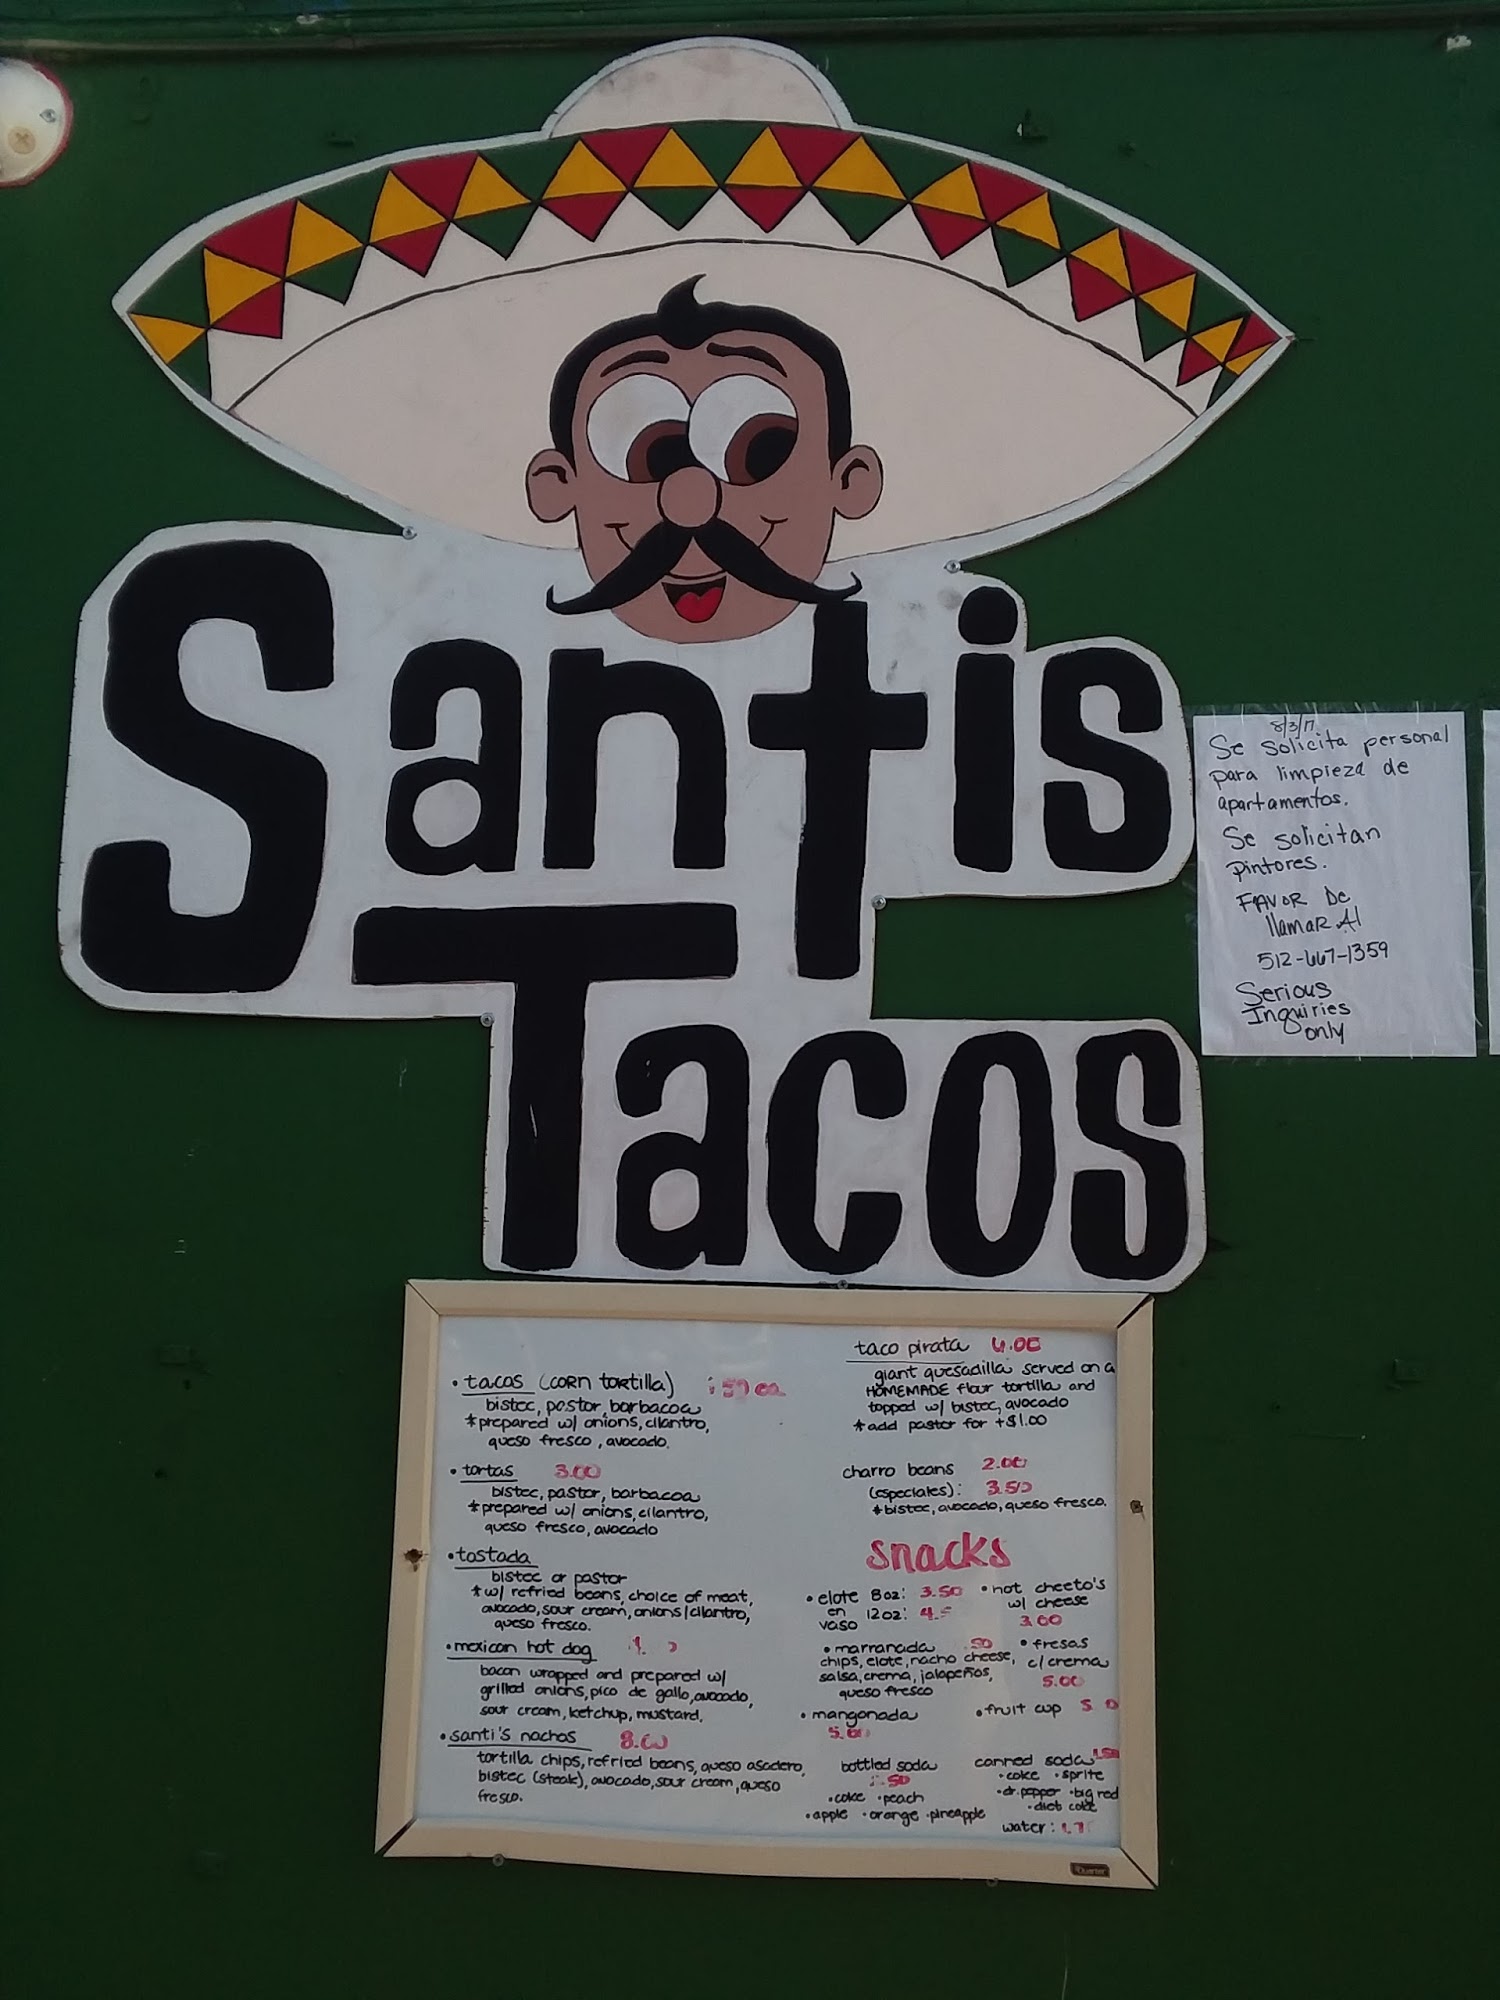 Santis
Tacos
8/3/17
Se solicita personal
para limpieza de
apartamentos.
Se solicitan
pintores.
FAVOR De
llamaR Al
512-667-1359
Serious
Inquiries
only
• tacos (CORN tortilla)
bistec, pastor, barbacoa
*prepared w/ onions, cilantro,
queso fresco, avocado.
• tortas 3.00
bistec, pastor, barbacoa
*prepared w/ onions, cilantro,
queso fresco, avocado
• tostada
bistec or pastor
*w/ refried beans, choice of meat,
avocado, sour cream, onions/cilantro,
queso fresco.
• mexican hot dog
bacon wrapped and prepared w/
grilled onions, pico de gallo, avocado,
sour cream, ketchup, mustard.
• santi's nachos 8.00
tortilla chips, refried beans, queso asadero,
bistec (steak), avocado, sour cream, queso
fresco.
taco pirata 6.00
giant quesadilla served on a
HOMEMADE flour tortilla and
topped w/ bistec, avocado
*add pastor for +$1.00
charro beans 2.00
(especiales): 3.50
*bistec, avocado, queso fresco.
snacks
• elote 8oz: 3.50
en 12oz:
vaso
• hot cheeto's
w/ cheese
3.00
• marranada
chips, elote, nacho cheese,
salsa, crema, jalapeños,
queso fresco
• fresas
c/crema
5.00
• mangonada
5.00
• fruit cup
bottled soda
• coke • peach
• apple • orange • pineapple
canned soda 1.50
• coke • sprite
• dr. pepper • big red
• diet coke
water:
Quartet